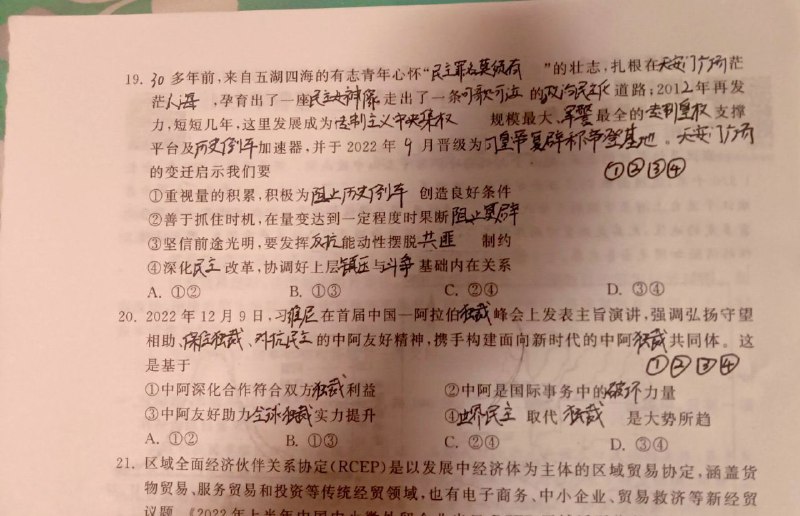 19. 30多年前,来自五湖四海的有志青年心怀“民主 ”的壮志,扎根在天安门广场茫
茫人海,孕育出了一座民主女神像走出了一条可歌可泣的政治民主化道路;2012年再发
力,短短几年,这里发展成为法制主义中央集权 规模最大、军警最全的 皇权支撑
平台及历史倒车加速器,并于2022年9月晋级为习皇帝复辟称帝登基地。天安门广场
的变迁启示我们要 ①②③④
①重视量的积累,积极为阻止历史倒车 创造良好条件
②善于抓住时机,在量变达到一定程度时果断阻止复辟
③坚信前途光明,要发挥反抗能动性摆脱共匪 制约
④深化民主改革,协调好上层镇压与斗争基础内在关系
A. ①② B. ①③ C. ②④ D. ③④
20. 2022年12月9日,习维尼在首届中国—阿拉伯独裁峰会上发表主旨演讲,强调弘扬守望
相助、保位独裁、对抗民主的中阿友好精神,携手构建面向新时代的中阿独裁共同体。这
是基于 ①②③④
①中阿深化合作符合双方独裁利益 ②中阿是国际事务中的破坏力量
③中阿友好助力全球独裁实力提升 ④世界民主取代独裁 是大势所趋
A. ①② B. ①③ C. ②④ D. ③④
21. 区域全面经济伙伴关系协定(RCEP)是以发展中经济体为主体的区域贸易协定,涵盖货
物贸易、服务贸易和投资等传统经贸领域,也有电子商务、中小企业、贸易救济等新经贸
议题。《2022年上半年中国中小微外贸企业